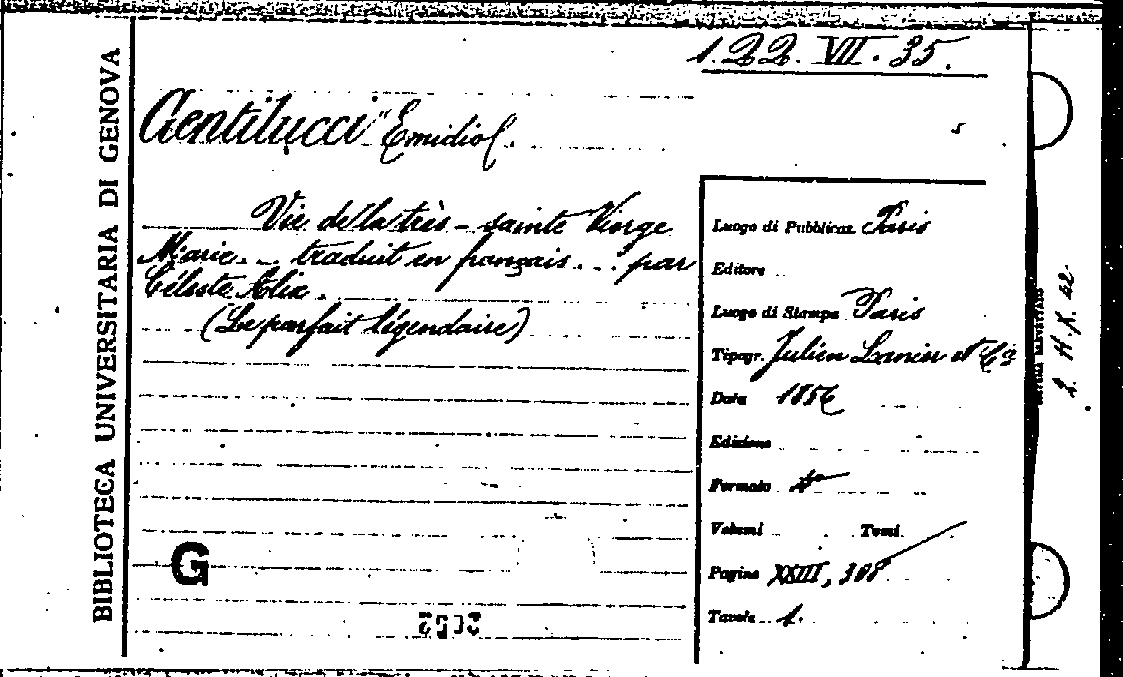 1.22.VII.35.
BIBLIOTECA UNIVERSITARIA DI GENOVA
Gentilucci Emidio
Vie de la très-sainte Vierge
Marie... traduit en français... par
Céleste Alix.
(Le parfait légendaire)
G
Luogo di Pubblicaz. Paris
Editore
Luogo di Stampa Paris
Tipogr. Julien Lanier et Cie
Data 1856
Edizione
Formato
Volumi Tomi
Pagine XXIII, 308
Tavole 1.